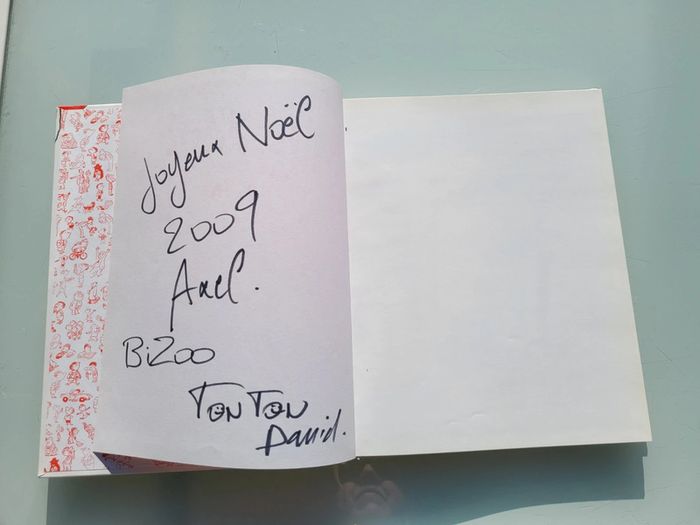 Joyeux Noël
2009
Axel.
BiZoo
TONTON
David.